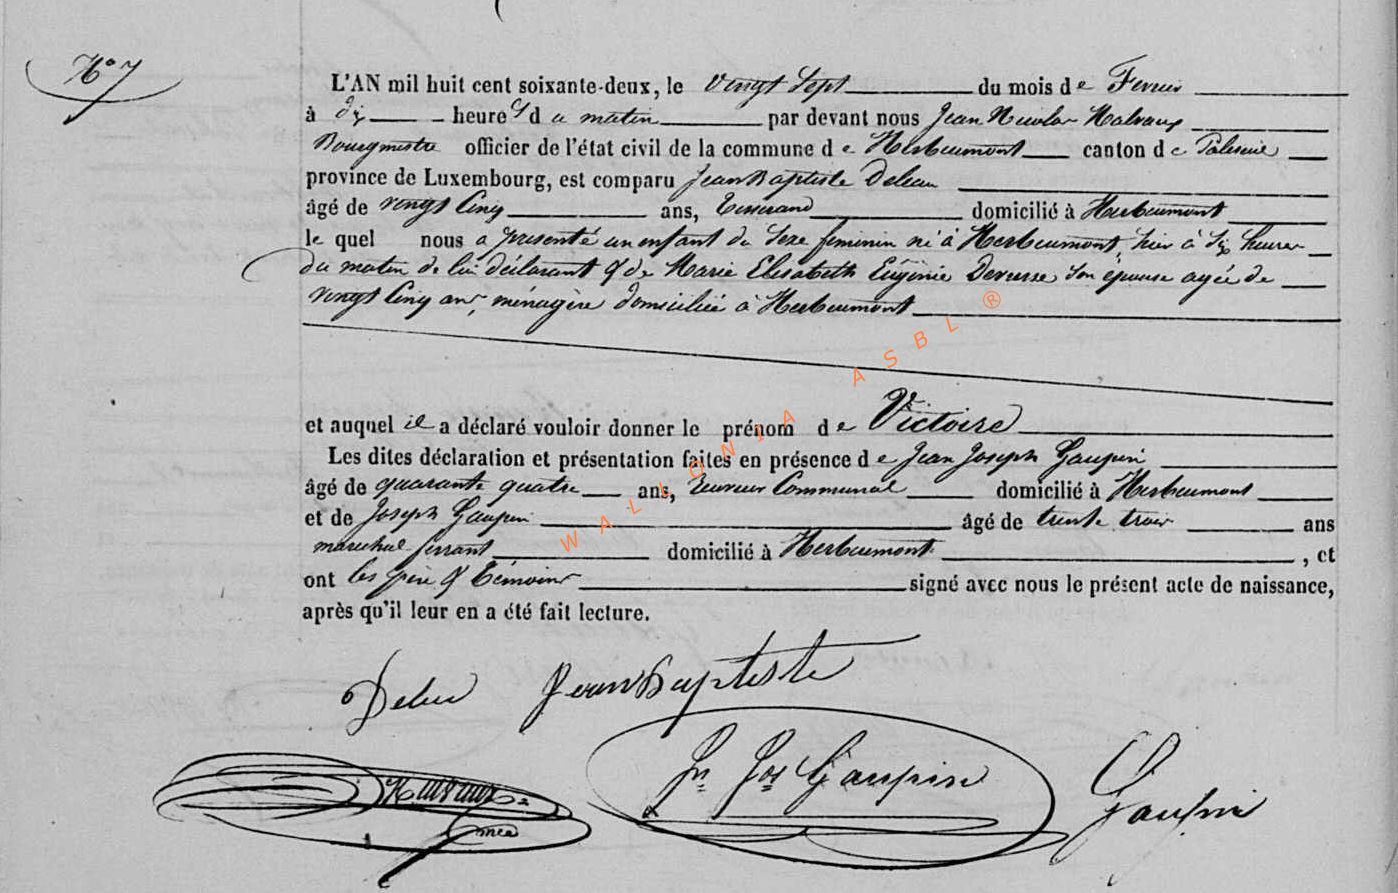 N° 7
L'AN mil huit cent soixante-deux, le vingt sept du mois de Fevrier
à dix heures d u matin par devant nous Jean Nicolas Malvaux
Bourgmestre officier de l'état civil de la commune de Herbeumont canton de Paliseul
province de Luxembourg, est comparu Jean Baptiste Deleau
âgé de vingt cinq ans, tisserand domicilié à Herbeumont
le quel nous a présenté un enfant du sexe feminin né à Herbeumont, hier à six heures
du matin de lui déclarant & de Marie Elisabeth Eugénie son épouse agée de
vingt cinq ans, ménagère domiciliée à Herbeumont
et auquel il a déclaré vouloir donner le prénom de Victoire
Les dites déclaration et présentation faites en présence de Jean Joseph Gaupin
âgé de quarante quatre ans, receveur Communal domicilié à Herbeumont
et de Joseph Gaupin âgé de trente trois ans
marechal ferrant domicilié à Herbeumont , et
ont les père & témoins signé avec nous le présent acte de naissance,
après qu'il leur en a été fait lecture.
Jean Baptiste
Malvaux
Jn Jos Gaupin
Gaupin
WALLONIA ASBL ®